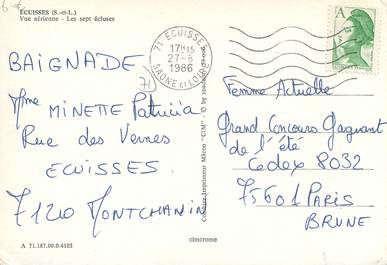 ECUISSES (S.-et-L.)
Vue aérienne - Les sept écluses
BAIGNADE
Mme MINETTE Patricia
Rue des Vernes
ECUISSES.
71210 MONTCHANIN
A 71.187.00.0.4105
71 ECUISSES
17H15
27-8
1986
SAONE ET LOIRE
71
Combier Imprimeur Mâcon "CIM"
cimcrome
A
Femme Actuelle
Grand Concours Gagnant
de l'été
Cedex 8032
75601 PARIS
BRUNE